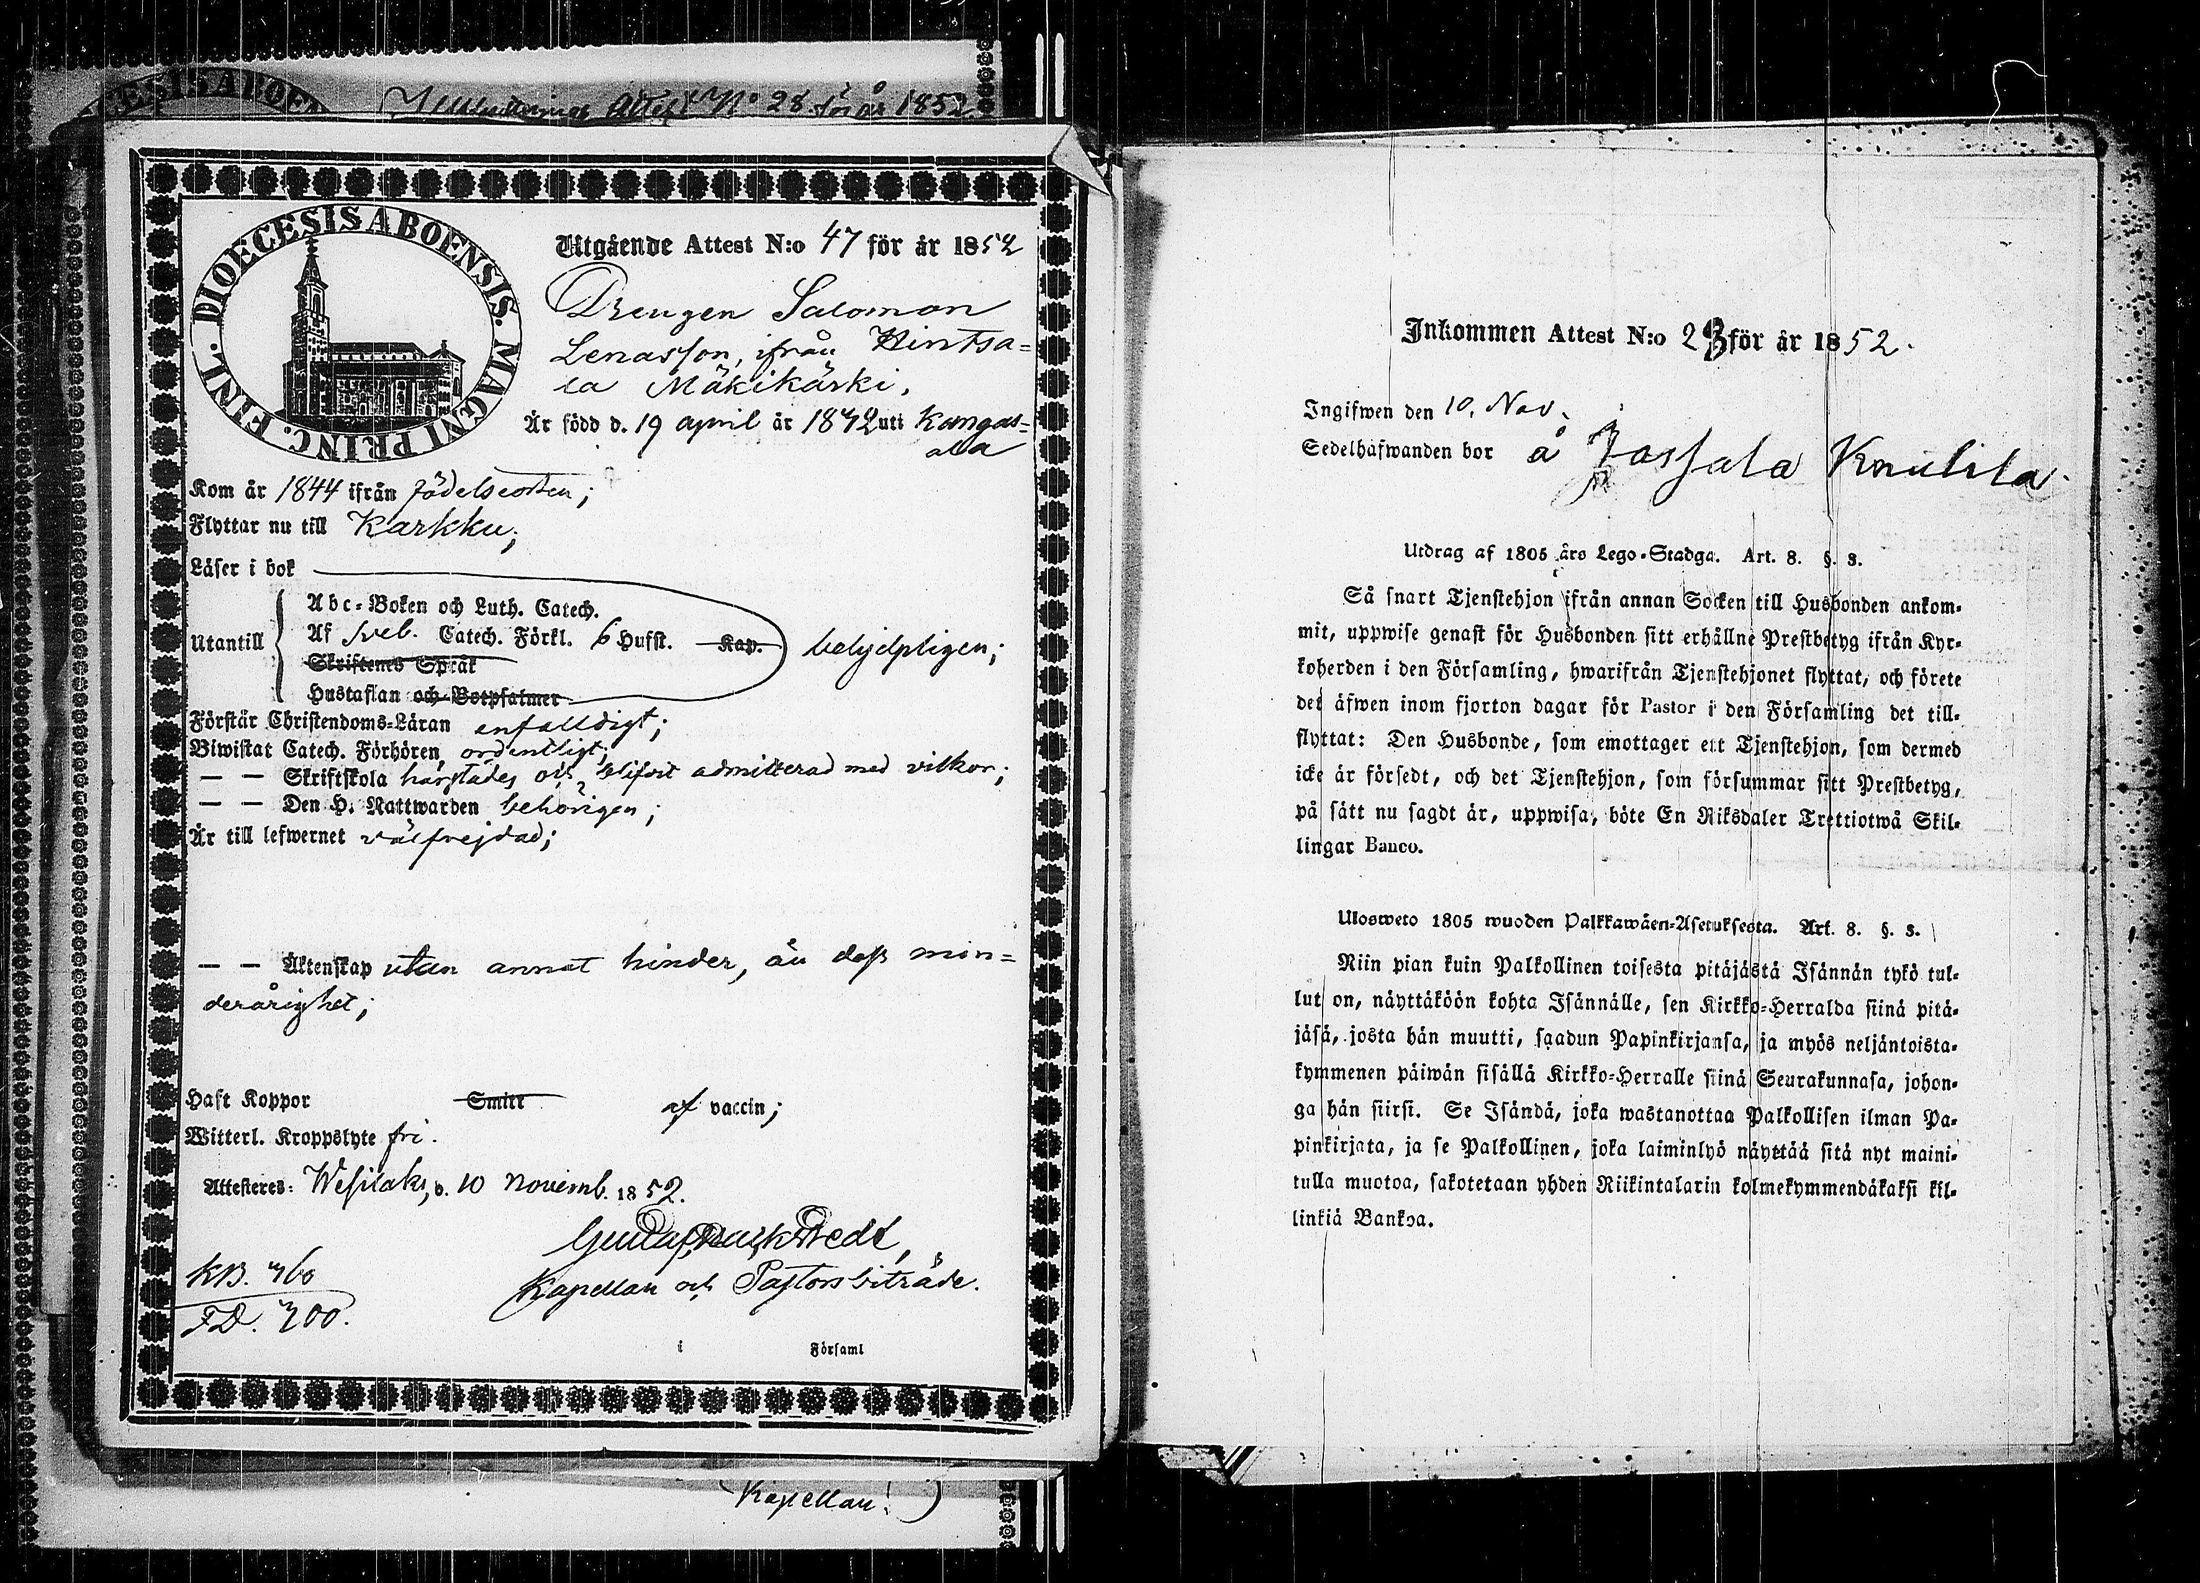 Utflyttnings Attest N:o 28 för år 1852.
DIOECESIS ABOENSIS. MAGNI PRINC. FINL.
Utgående Attest N:o 47 för år 1852
Drengen Salomon
Lenasson, ifrån Hintsa=
la Mäkikärki,
Är född d. 19 april år 1832 uti Kangas=
ala
Kom år 1844 ifrån födelseorten;
Flyttar nu till Karkku;
Läser i bok
Utantill
Abc=Boken och Luth. Catech.
Af sveb. Catech. Förkl. 6 Hufst. Kap.
Skriftenes Språk
Hustaflan och Botpsalmer
behjelpligen;
Förstår Christendoms=Läran enfalldigt;
Biwistat Catech. Förhören, ordentligt;
— — Skriftskola härstädes och blifvit admitterad med vilkor;
— — Den H. Nattwarden behörigen;
Är till lefwernet välfrejdad;
— — Äktenskap utan annat hinder, än dess min=
derårighet;
Haft Koppor Smitt af vaccin;
Witterl. Kroppslyte fri.
Attesteres: Wesilaks, d. 10 Novemb. 1852.
Gustaf
Kapellan och Pastorsbiträde.
KB. 360
FD. 300.
i Församl
Kapellan.
Inkommen Attest N:o 28 för år 1852.
Ingifwen den 10. Nov.
Sedelhafwanden bor å Jassala Knulila.
Utdrag af 1805 års Lego-Stadga. Art. 8. §. 3.
Så snart Tjenstehjon ifrån annan Socken till Husbonden ankom-
mit, uppwise genast för Husbonden sitt erhållne Prestbetyg ifrån Kyr-
koherden i den Församling, hwarifrån Tjenstehjonet flyttat, och förete
det äfwen inom fjorton dagar för Pastor i den Församling det till-
flyttat: Den Husbonde, som emottager ett Tjenstehjon, som dermed
icke är försedt, och det Tjenstehjon, som försummar sitt Prestbetyg,
på sätt nu sagdt är, uppwisa, böte En Riksdaler Trettiotwå Skil-
lingar Banco.
Uloswето 1805 wuoden Palkkawäen-Asetuksesta. Art. 8. §. 3.
Niin pian kuin Palkollinen toisesta pitäjästä Isännän tykö tul-
lut on, näyttäköön kohta Isännälle, sen Kirkko=Herralda siinä pitä-
jäsä, josta hän muutti, saadun Papinkirjansa, ja myös neljäntoista-
kymmenen päiwän sisällä Kirkko=Herralle siinä Seurakunnasa, johon-
ga hän siirsi. Se Isändä, joka wastanottaa Palkollisen ilman Pa-
pinkirjata, ja se Palkollinen, joka laiminlyö näyttää sitä nyt maini-
tulla muotoa, sakotetaan yhden Riikintalarin kolmekymmendäkaksi kil-
linkiä Bankoa.